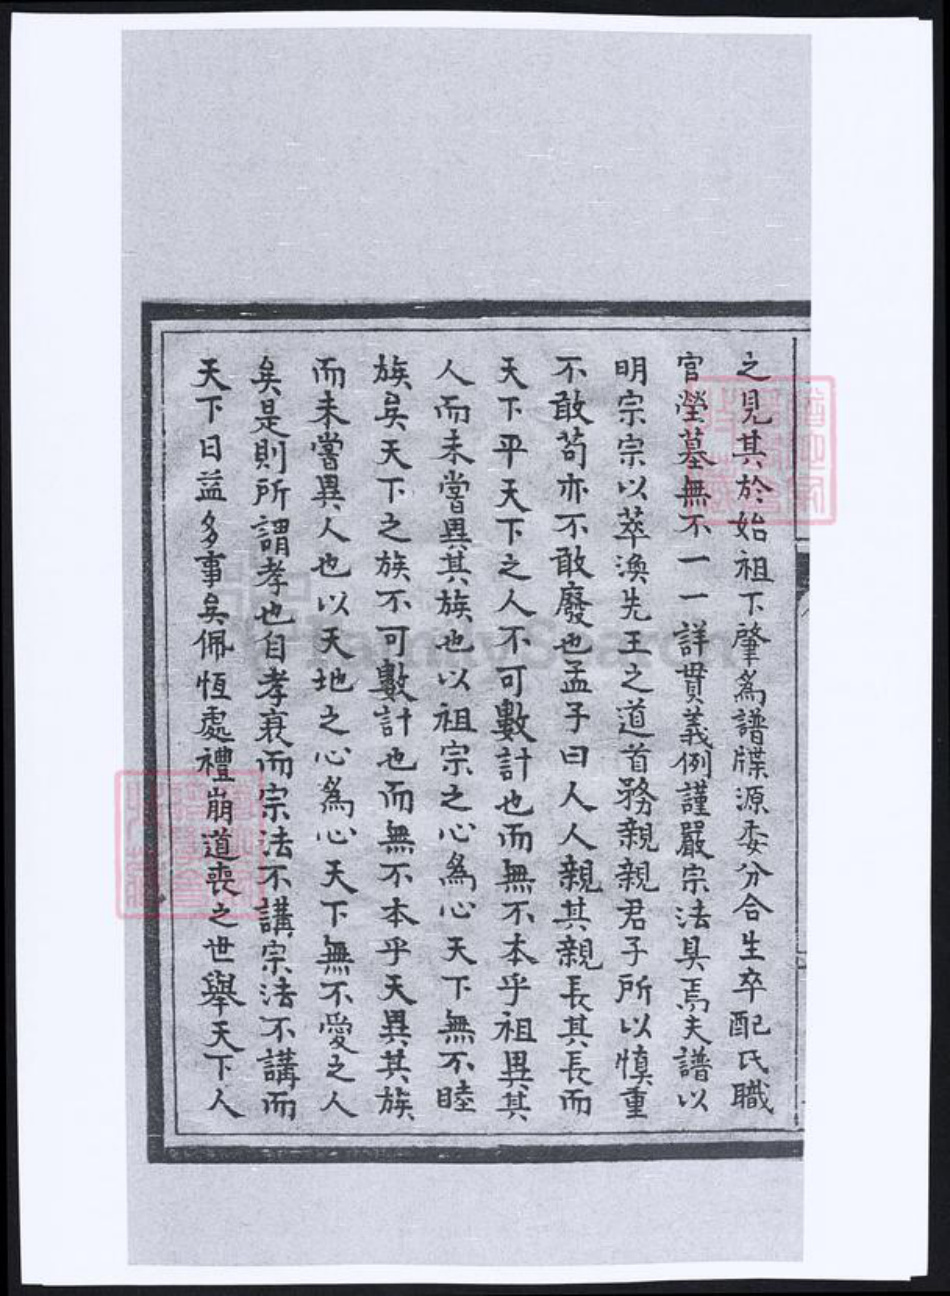 之見其於始祖下肇為譜牒源委分合生卒配氏職
官塋墓無不一一詳貫義例謹嚴宗法具焉夫譜以
明宗宗以萃渙先王之道首務親親君子所以慎重
不敢苟亦不敢廢也孟子曰人人親其親長其長而
天下平天下之人不可數計也而無不本乎祖異其
人而未嘗異其族也以祖宗之心為心天下無不睦
族矣天下之族不可數計也而無不本乎天異其族
而未嘗異人也以天地之心為心天下無不愛之人
矣是則所謂孝也自孝衰而宗法不講宗法不講而
天下日益多事矣佩恆處禮崩道喪之世舉天下人
FamilySearch